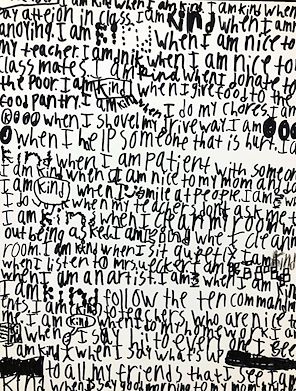 pay attetion in class. I am kind when I am
anoying. I am kind when I am nice to
my teacher. I am kind when I am nice to
class mates I am kind when I donate to
the Poor. I am kind when I give food to the
food pantry. I am kind when I do my chores. I am
kind when I shovel my driveway. I am
when I help someone that is hurt. I a
kind when I am patient with someon
I am kind when I am nice to my mom and d
I am kind when I smile at people. I am
I do when my teacher dosn't ask me t
I am kind when I clean my room with
out being asked. I am kind when I clean
room. I am kind when I sit quietly. I am
when I listen to Mrs. I am kind
when I am an artist. I am
I am kind follow the ten commandm
ents. I am kind to teachers who are nice t
me. I am kind when I do my home work. I a
kind when I say hi to every one I see
I am kind when I say what's up
to all my friends that I see
kind when I say good morning to my mom